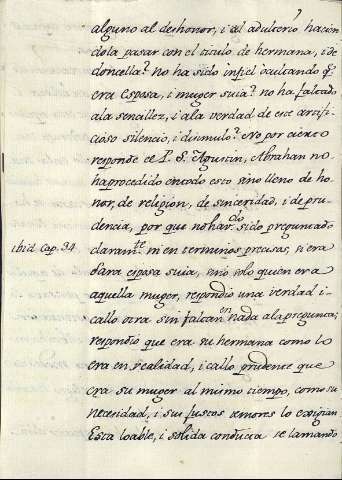 alguno al deshonor, i al adulterio hacien
dola pasar con el titulo de hermana, i de
doncella? no ha sido infiel ocultando q.e
era Esposa, i muger suia? no ha faltado
ala sencillez, i ala verdad de este artifi-
cioso silencio, i disimulo? No por cierto
responde el P. S. Agustin, Abrahan no
ha procedido en todo esto sino lleno de ho-
nor, de religion, de sinceridad, i de pru-
dencia, por que no hav.do sido preguntado
ibid. cap. 34. claram.te ni en terminos precisos, si era
Sara esposa suia, sino solo quien era
aquella muger, respondio una verdad i
callo otra sin faltar en nada ala pregunta;
respondio que era su hermana como lo
era en realidad, i callo prudente que
era su muger al mismo tiempo, como su
necesidad, i sus justos temores lo exigian
Esta loable, i solida conducta se